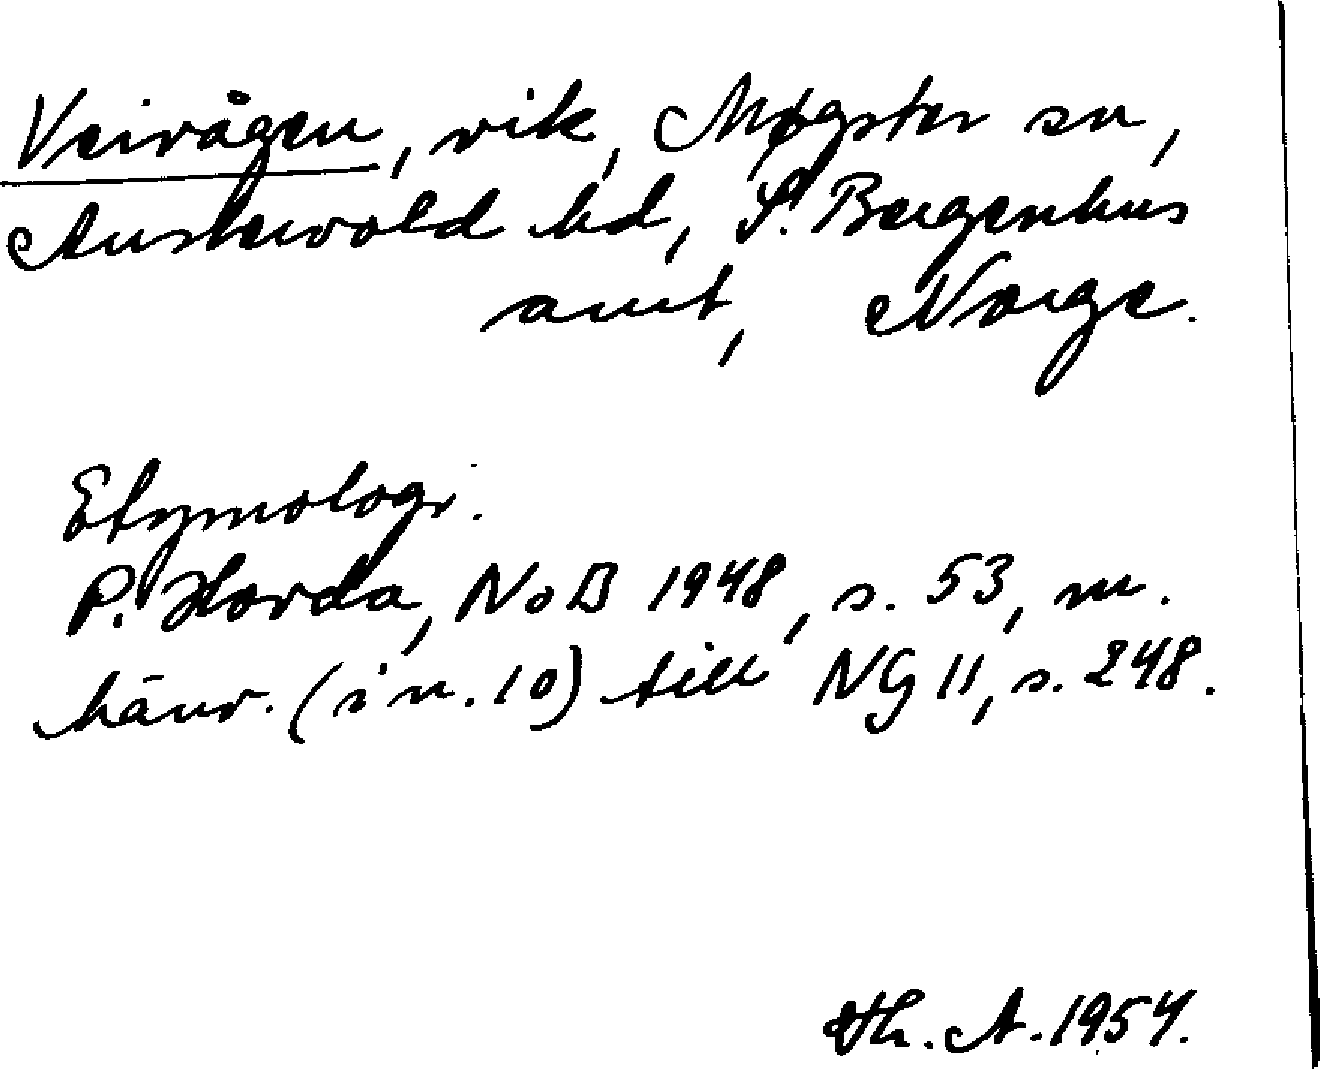 Veivågen, vik, Møgster sn,
Austervold hd, S. Bergenhus
amt, Norge.
Etymologi.
P. Hovda, NoB 1948, s. 53, m.
hänv. (i n. 10) till NG 11, s. 248.
Th. A. 1954.